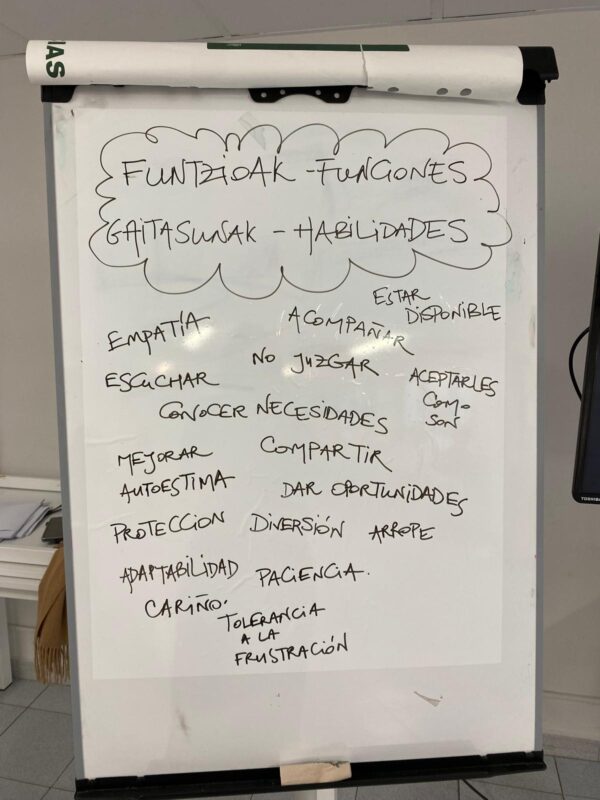 IAS
FUNTZIOAK - FUNCIONES
GAITASUNAK - HABILIDADES
ESTAR
DISPONIBLE
EMPATÍA
ACOMPAÑAR
NO JUZGAR
ESCUCHAR
ACEPTARLES
COMO
SON
CONOCER NECESIDADES
MEJORAR
AUTOESTIMA
COMPARTIR
DAR OPORTUNIDADES
PROTECCION
DIVERSIÓN
ARROPE
ADAPTABILIDAD
PACIENCIA.
CARIÑO.
TOLERANCIA
A LA
FRUSTRACIÓN
TOSHIBA